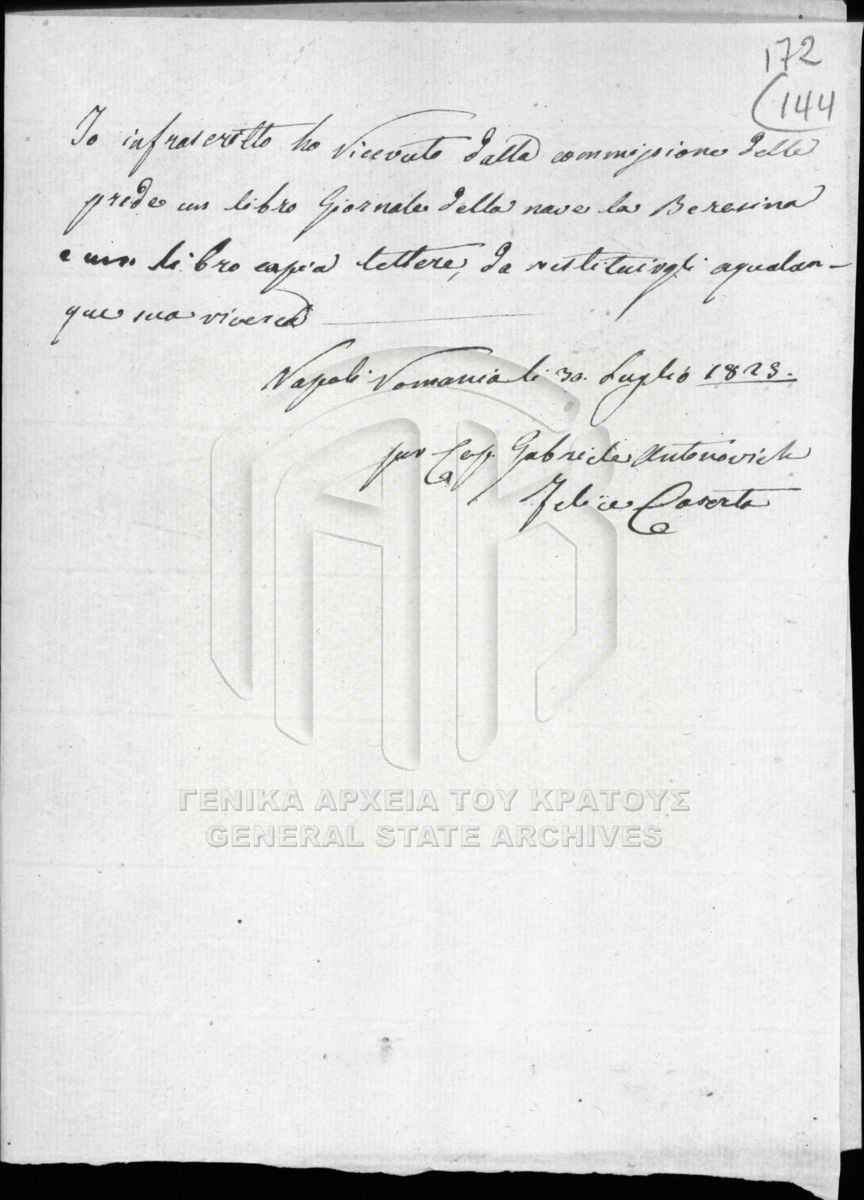 172
144
Io infrascritto ho ricevuto dalla commissione delle
prede un libro Giornale della nave la Beresina
e un libro copia lettere, da restituirgli aqualun-
que sua ricerca
Napoli Romania li 30. Luglio 1828.
per Cap. Gabriele Antonovich
Felice Caserta
ΓΕΝΙΚΑ ΑΡΧΕΙΑ ΤΟΥ ΚΡΑΤΟΥΣ
GENERAL STATE ARCHIVES